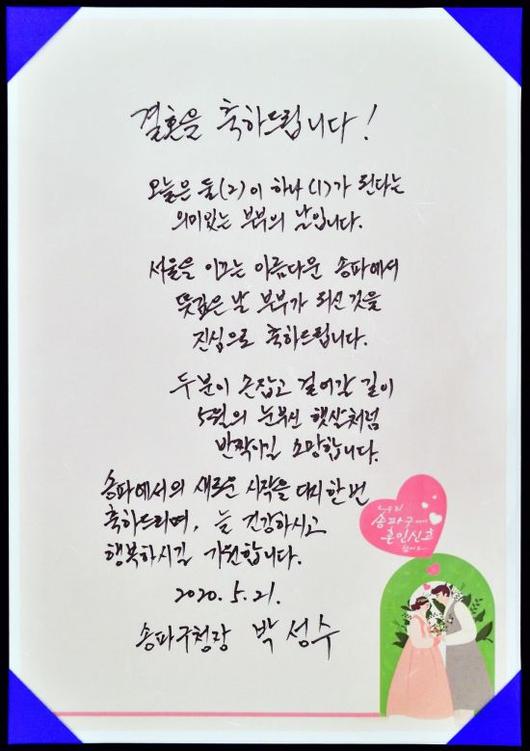 결혼을 축하드립니다!
오늘은 둘(2)이 하나(1)가 된다는
의미있는 부부의 날입니다.
서울을 이끄는 아름다운 송파에서
뜻깊은 날 부부가 되신 것을
진심으로 축하드립니다.
두 분이 손잡고 걸어갈 길이
5월의 눈부신 햇살처럼
반짝이길 소망합니다.
송파에서의 새로운 시작을 다시 한번
축하드리며, 늘 건강하시고
행복하시길 기원합니다.
2020. 5. 21.
송파구청장 박성수
우리
송파구에서
혼인신고
했어요